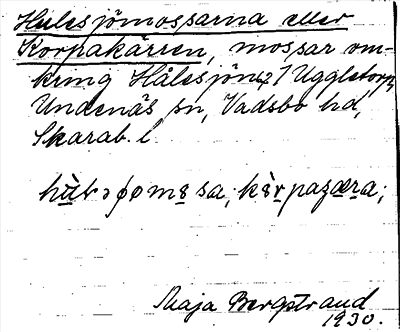 Hålesjömossarna eller
Korpakärren, mossar om-
kring Hålesjön, Uggletorp,
Undenäs sn, Vadsbo hd,
Skarab. l.
Maja Bergstrand
1930.